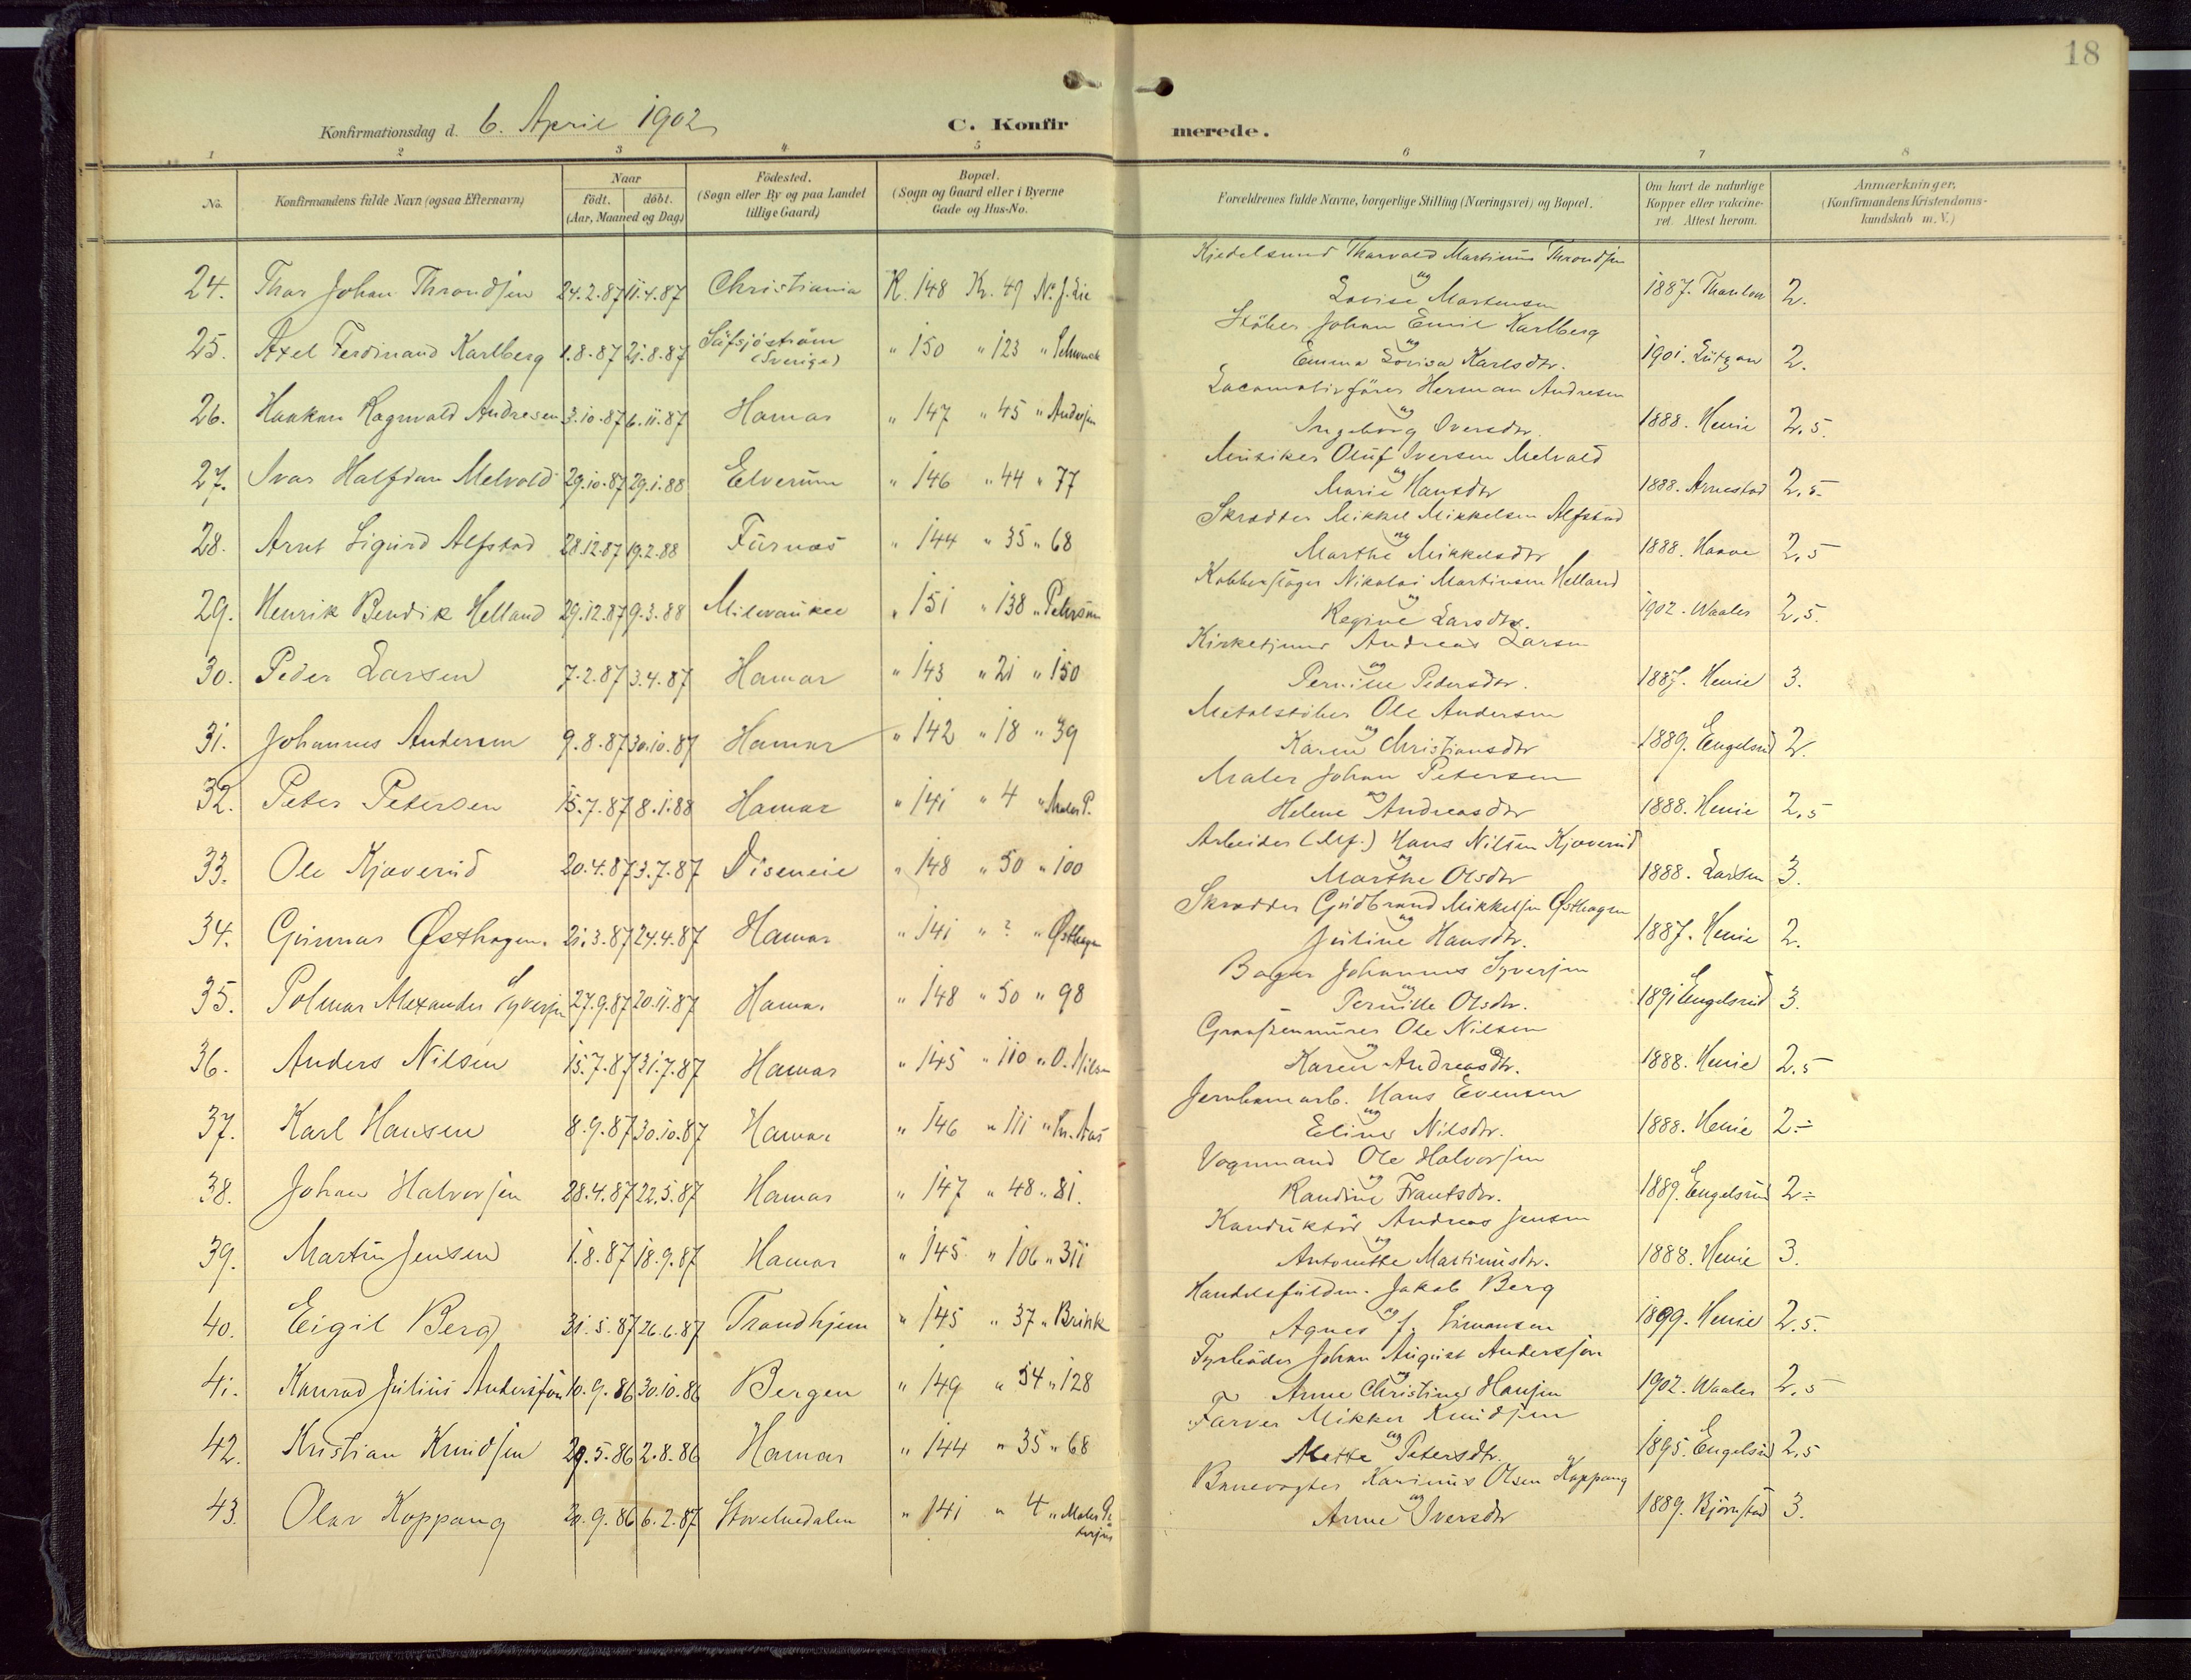 18
Konfirmationsdag d. 6. April 1902
C. Konfirmerede.
1 2 3 4 5 6 7 8
No. Konfirmandens fulde Navn (ogsaa Efternavn) Naar födt. döbt. (Aar, Maaned og Dag) Födested. (Sogn eller By og paa Landet tillige Gaard) Bopæl. (Sogn og Gaard eller i Byerne Gade og Hus-No. Forældrenes fulde Navne, borgerlige Stilling (Næringsvei) og Bopæl. Om havt de naturlige Kopper eller vakcineret. Attest herom. Anmærkninger, (Konfirmandens Kristendomskundskab m. V.)
24. Thor Johan Throndsen 24.2.87 11.4.87 Christiania K. 148 Kv. 49 N. J. Lie Kjedelsmed Thorvald Martinius Throndsen og Lovise Martensen 1887. Thaulow 2.
25. Axel Ferdinand Karlberg 1.8.87 21.8.87 Säfsjöström (Sverige) " 150 " 123 " Schwenck Støber Johan Emil Karlberg og Emma Lovisa Karlsdtr. 1901. Lützow 2.
26. Haakon Ragnvald Andresen 3.10.87 6.11.87 Hamar " 147 " 45 " Andersen Locomotivfører Herman Andresen og Ingeborg Iversdtr. 1888. Henie 2,5.
27. Ivar Halfdan Melvold 29.10.87 29.1.88 Elverum " 146 " 44 " 77 Musiker Oluf Iversen Melvold og Marie Hansdtr 1888. Arnestad 2,5
28. Arnt Sigurd Alfstad 28.12.87 19.2.88 Furnæs " 144 " 35 " 68 Skrædder Mikkel Mikkelsen Alfstad og Marthe Mikkelsdtr 1888. Haave 2,5
29. Henrik Bendik Helland 29.12.87 9.3.88 Milwaukee " 151 " 138 " Petersen Kobberslager Nikolai Martinsen Helland og Regine Larsdtr. 1902. Waaler 2,5.
30. Peder Larsen 7.2.87 3.4.87 Hamar " 143 " 21 " 150 Kirketjener Andreas Larsen og Pernille Pedersdtr. 1887. Henie 3.
31. Johannes Andersen 9.8.87 30.10.87 Hamar " 142 " 18 " 39 Metalstøber Ole Andersen og Karen Christiansdtr 1889. Engelsrud 2.
32. Peter Petersen 15.7.87 8.1.88 Hamar " 141 " 4 " Maler P. Maler Johan Petersen og Helene Andreasdtr 1888. Henie 2,5
33. Ole Kjæverud 20.4.87 3.7.87 Diseneie " 148 " 50 " 100 Arbeider (Mf.) Hans Nilsen Kjæverud og Marthe Olsdtr 1888. Larsen 3.
34. Gunnar Østhagen. 21.3.87 24.4.87 Hamar " 141 " ? " Østhagen Skrædder Gudbrand Mikkelsen Østhagen og Juline Hansdtr. 1887. Henie 2.
35. Polmar Alexander Syversen 27.9.87 20.11.87 Hamar " 148 " 50 " 98 Bager Johannes Syversen og Pernille Olsdtr. 1891 Engelsrud 3.
36. Anders Nilsen 15.7.87 31.7.87 Hamar " 145 " 110 " O. Nilsen Graastenmurer Ole Nilsen og Karen Andreasdtr. 1888. Henie 2,5
37. Karl Hansen 8.9.87 30.10.87 Hamar " 146 " 111 " Jernbanearb. Hans Evensen og Eline Nilsdtr. 1888. Henie 2÷
38. Johan Halvorsen 28.4.87 22.5.87 Hamar " 147 " 48 " 81. Vognmand Ole Halvorsen og Randine Frantsdtr. 1889. Engelsrud 2÷
39. Martin Jensen 1.8.87 18.9.87 Hamar " 145 " 106 " 311 Konduktør Andreas Jensen og Antonette Martinusdtr. 1888. Henie 3.
40. Eigil Berg 31.5.87 26.6.87 Trondhjem " 145 " 37 " Brikk Handelsfuldm. Jakob Berg og Agnes J. Simonsen 1899. Henie 2,5.
41. Konrad Julius Andersson 10.9.86 30.10.86 Bergen " 149 " 54 " 128 Fyrbøder Johan August Andersson og Anne Christine Hansen 1902. Waaler 2,5
42. Kristian Knudsen 29.5.86 2.8.86 Hamar " 144 " 35 " 68 Farver Mikkel Knudsen og Mette Petersdtr. 1895. Engelsrud 2,5
43. Olav Koppang 20.9.86 6.2.87 Storelvedalen " 141 " 4 " Maler Petersen Banevogter Karinus Olsen Koppang og Anne Iversdtr 1889. Bjørnstad 3.